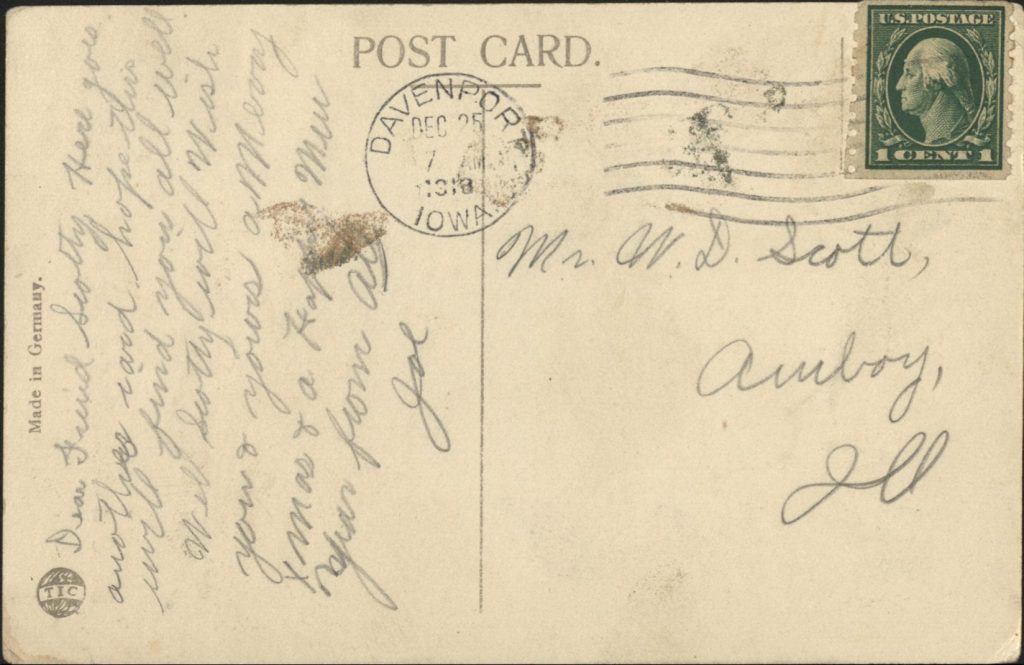 POST CARD.
U.S. POSTAGE
1 CENT 1
DAVENPORT
DEC 25
7 AM
IOWA
Mr. W. D. Scott,
Amboy,
Ill
Made in Germany.
TIC
Dear Friend Scotty Here goes
another card hope this
will find you all well
Well Scotty will Wish
you & yours a Merry
Xmas & a Happy New
Year from all
Joe